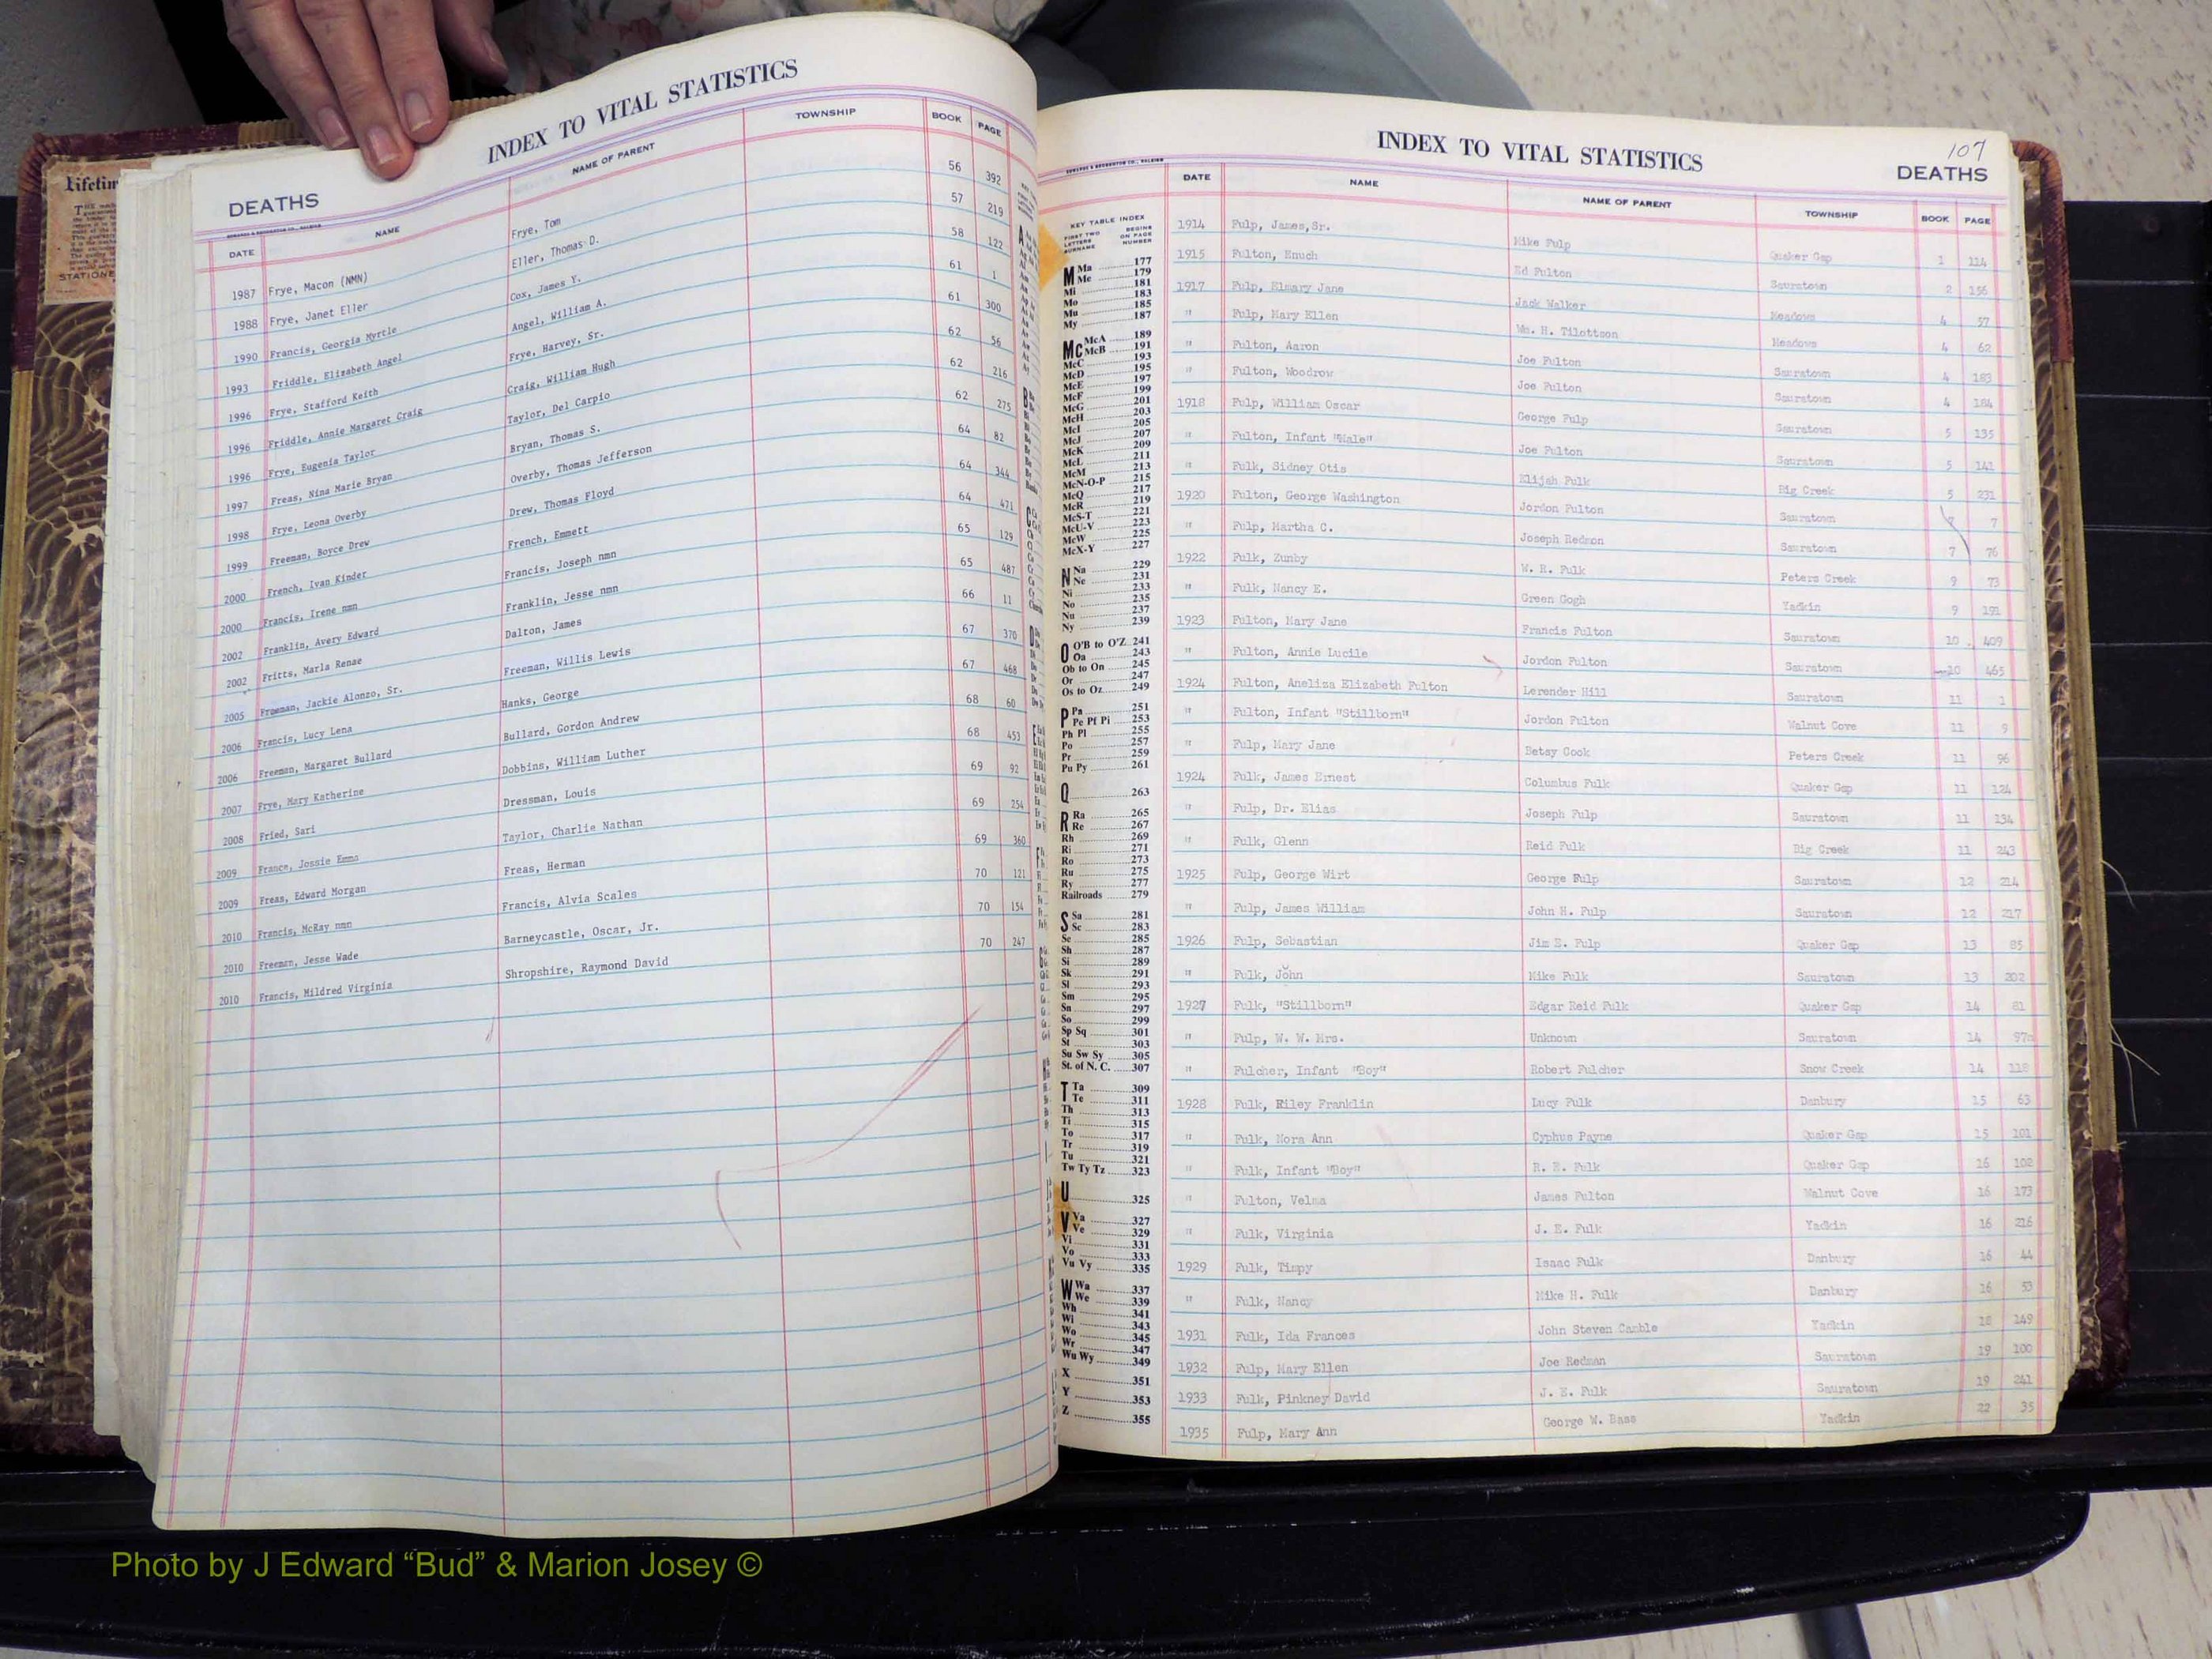 Lifetim
STATIONE
INDEX TO VITAL STATISTICS
DEATHS
DATE NAME NAME OF PARENT TOWNSHIP BOOK PAGE
1987 Frye, Macon (NMN) Frye, Tom 56 392
1988 Frye, Janet Eller Eller, Thomas D. 57 219
1990 Francis, Georgia Myrtle Cox, James Y. 58 122
1993 Friddle, Elizabeth Angel Angel, William A. 61 1
1996 Frye, Stafford Keith Frye, Harvey, Sr. 61 300
1996 Friddle, Annie Margaret Craig Craig, William Hugh 62 56
1996 Frye, Eugenia Taylor Taylor, Del Carpio 62 216
1997 Freas, Nina Marie Bryan Bryan, Thomas S. 62 275
1998 Frye, Leona Overby Overby, Thomas Jefferson 64 82
1999 Freeman, Boyce Drew Drew, Thomas Floyd 64 344
2000 French, Ivan Kinder French, Emmett 64 471
2000 Francis, Irene nmn Francis, Joseph nmn 65 129
2002 Franklin, Avery Edward Franklin, Jesse nmn 65 487
2002 Fritts, Marla Renae Dalton, James 66 11
2005 Freeman, Jackie Alonzo, Sr. Freeman, Willis Lewis 67 370
2006 Francis, Lucy Lena Hanks, George 67 468
2006 Freeman, Margaret Bullard Bullard, Gordon Andrew 68 60
2007 Frye, Mary Katherine Dobbins, William Luther 68 453
2008 Fried, Sari Dressman, Louis 69 92
2009 France, Jossie Emma Taylor, Charlie Nathan 69 254
2009 Freas, Edward Morgan Freas, Herman 69 360
2010 Francis, McRay nmn Francis, Alvia Scales 70 121
2010 Freeman, Jesse Wade Barneycastle, Oscar, Jr. 70 154
2010 Francis, Mildred Virginia Shropshire, Raymond David 70 247
107
INDEX TO VITAL STATISTICS
DEATHS
DATE NAME NAME OF PARENT TOWNSHIP BOOK PAGE
KEY TABLE INDEX
FIRST TWO LETTERS SURNAME BEGINS ON PAGE NUMBER
M Ma 177
Me 179
Mi 181
Mo 183
Mu 185
My 187
Mc McA 189
McB 191
McC 193
McD 195
McE 197
McF 199
McG 201
McH 203
McI 205
McJ 207
McK 209
McL 211
McM 213
McN-O-P 215
McQ 217
McR 219
McS-T 221
McU-V 223
McW 225
McX-Y 227
N Na 229
Ne 231
Ni 233
No 235
Nu 237
Ny 239
O O'B to O'Z 241
Oa 243
Ob to On 245
Or 247
Os to Oz 249
P Pa 251
Pe Pf Pi 253
Ph Pl 255
Po 257
Pr 259
Pu Py 261
Q 263
R Ra 265
Re 267
Rh 269
Ri 271
Ro 273
Ru 275
Ry 277
Railroads 279
S Sa 281
Sc 283
Se 285
Sh 287
Si 289
Sk 291
Sl 293
Sm 295
Sn 297
So 299
Sp Sq 301
St 303
Su Sw Sy 305
St. of N. C. 307
T Ta 309
Te 311
Th 313
Ti 315
To 317
Tr 319
Tu 321
Tw Ty Tz 323
U 325
V Va 327
Ve 329
Vi 331
Vo 333
Vu Vy 335
W Wa 337
We 339
Wh 341
Wi 343
Wo 345
Wr 347
Wu Wy 349
X 351
Y 353
Z 355
1914 Fulp, James, Sr. Mike Fulp Quaker Gap 1 114
1915 Fulton, Enuch Ed Fulton Sauratown 2 156
1917 Fulp, Elmary Jane Jack Walker Meadows 4 57
" Fulp, Mary Ellen Wm. H. Tilottson Meadows 4 62
" Fulton, Aaron Joe Fulton Sauratown 4 183
" Fulton, Woodrow Joe Fulton Sauratown 4 184
1918 Fulp, William Oscar George Fulp Sauratown 5 135
" Fulton, Infant "Male" Joe Fulton Sauratown 5 141
" Fulk, Sidney Otis Elijah Fulk Big Creek 5 231
1920 Fulton, George Washington Jordon Fulton Sauratown 7 7
" Fulp, Martha C. Joseph Redmon Sauratown 7 76
1922 Fulk, Zunby W. R. Fulk Peters Creek 9 73
" Fulk, Nancy E. Green Gogh Yadkin 9 191
1923 Fulton, Mary Jane Francis Fulton Sauratown 10 409
" Fulton, Annie Lucile Jordon Fulton Sauratown 10 465
1924 Fulton, Aneliza Elizabeth Fulton Lerender Hill Sauratown 11 1
" Fulton, Infant "Stillborn" Jordon Fulton Walnut Cove 11 9
" Fulp, Mary Jane Betsy Cook Peters Creek 11 96
1924 Fulk, James Ernest Columbus Fulk Quaker Gap 11 124
" Fulp, Dr. Elias Joseph Fulp Sauratown 11 134
" Fulk, Glenn Reid Fulk Big Creek 11 243
1925 Fulp, George Wirt George Fulp Sauratown 12 214
" Fulp, James William John H. Fulp Sauratown 12 217
1926 Fulp, Sebastian Jim E. Fulp Quaker Gap 13 85
" Fulk, John Mike Fulk Sauratown 13 202
1927 Fulk, "Stillborn" Edgar Reid Fulk Quaker Gap 14 81
" Fulp, W. W. Mrs. Unknown Sauratown 14 97a
" Fulcher, Infant "Boy" Robert Fulcher Snow Creek 14 118
1928 Fulk, Riley Franklin Lucy Fulk Danbury 15 63
" Fulk, Nora Ann Cyphus Payne Quaker Gap 15 101
" Fulk, Infant "Boy" R. E. Fulk Quaker Gap 16 102
" Fulton, Velma James Fulton Walnut Cove 16 173
" Fulk, Virginia J. E. Fulk Yadkin 16 216
1929 Fulk, Timpy Isaac Fulk Danbury 16 44
" Fulk, Nancy Mike H. Fulk Danbury 16 53
1931 Fulk, Ida Frances John Steven Camble Yadkin 18 149
1932 Fulp, Mary Ellen Joe Redman Sauratown 19 100
1933 Fulk, Pinkney David J. E. Fulk Sauratown 19 241
1935 Fulp, Mary Ann George W. Bass Yadkin 22 35
Photo by J Edward “Bud” & Marion Josey ©